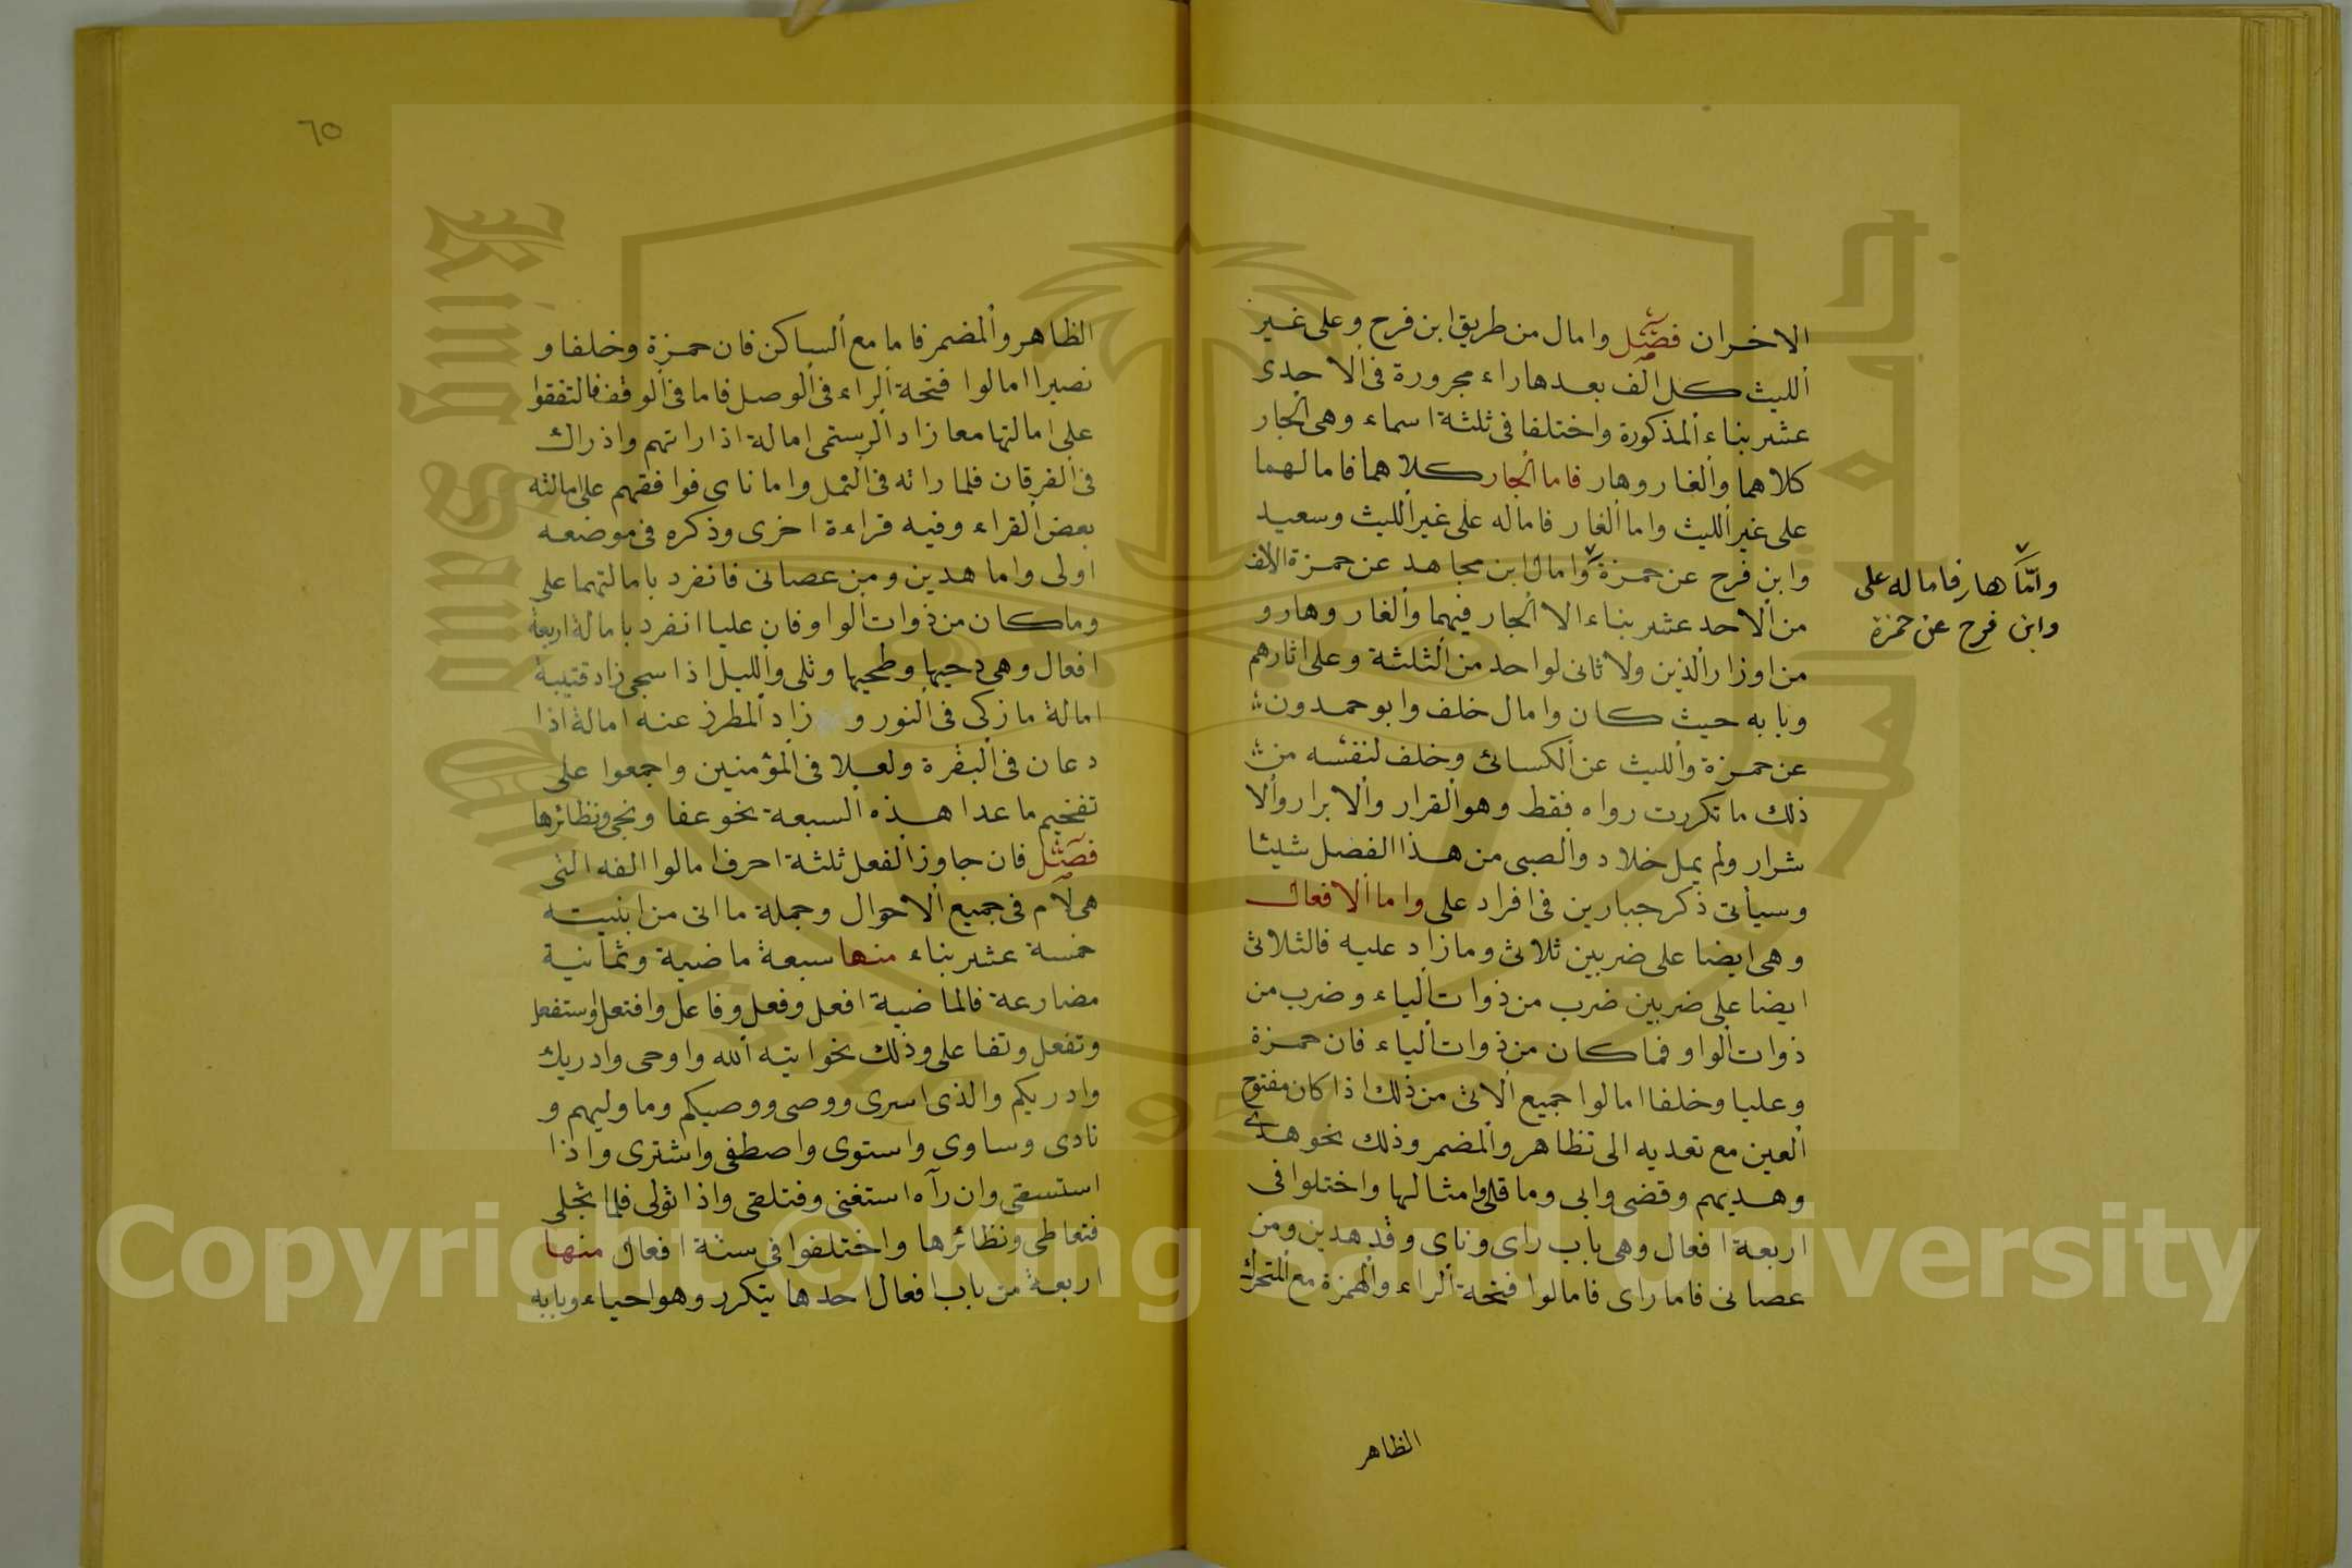 الاخران فصل وامال من طريق ابن فرح وعلى غير
الليث كل الف بعدها راء مجرورة فى الاحدى
عشر بناء المذكورة واختلفا فى ثلثة اسماء وهى الجار
كلاهما والغار وهار فاما الجار كلاهما فامالهما
على غير الليث واما الغار فاماله على غير الليث وسعيد
وابن فرح عن حمزة وامال ابن مجاهد عن حمزة الالف
من الاحد عشر بناء الا الجار فيهما والغار وهار و
من اوزار الذين ولا ثانى لواحد من الثلثة وعلى اثارهم
وبابه حيث كان وامال خلف وابو حمدون
عن حمزة والليث عن الكسائى وخلف لنفسه من
ذلك ما تكررت رواه فقط وهو القرار والابرار والا
شرار ولم يمل خلاد والصبى من هذا الفصل شيئا
وسيأتى ذكر جبارين فى افراد على واما الافعال
وهى ايضا على ضربين ثلاثى وما زاد عليه فالثلاثى
ايضا على ضربين ضرب من ذوات الياء وضرب من
ذوات الواو فما كان من ذوات الياء فان حمزة
وعليا وخلفا امالوا جميع الاتى من ذلك اذا كان مفتوح
العين مع تعديه الى تظاهر والمضمر وذلك نحو هدى
وهديهم وقضى وابى وما قلى وامثالها واختلوا فى
اربعة افعال وهى باب راى وناى وقد هدين ومن
عصانى فاما راى فامالوا فتحة الراء والهمزة مع المتحرك
وامّا هار فاماله على
وابن فرح عن حمزة
الظاهر
٦٥
الظاهر والمضمر فاما مع الساكن فان حمزة وخلفا و
نصيرا امالوا فتحة الراء فى الوصل فاما فى الوقف فالتفقوا
على امالتها معا زاد الرستمى امالة اذا راتهم واذ راك
فى الفرقان فلما راته فى النمل واما ناى فوافقهم على امالته
بعض القراء وفيه قراءة اخرى وذكره فى موضعه
اولى واما هدين ومن عصانى فانفرد بامالتهما على
وما كان من ذوات الواو فان عليا انفرد بامالة اربعة
افعال وهى دحيها وطحيها وتلى والليل اذا سجى زاد قتيبة
امالة ما زكى فى النور و زاد المطرز عنه امالة اذا
دعان فى البقرة ولعلا فى المؤمنين واجمعوا على
تفخيم ما عدا هذه السبعة نحو عفا ونجى ونظائرها
فصل فان جاوز الفعل ثلثة احرف امالوا الفه التى
هى لام فى جميع الاحوال وجملة ما اتى من ابنيته
خمسة عشر بناء منها سبعة ماضية وثمانية
مضارعة فالماضية افعل وفعل وفاعل وافتعل واستفعل
وتفعل وتفاعل وذلك نحو ايته الله واوحى وادريك
وادريكم والذى اسرى ووصى ووصيكم وما وليهم و
نادى وساوى واستوى واصطفى واشترى واذا
استسقى وان رآه استغنى وفتلقى واذا تولى فلما تجلى
فتعاطى ونظائرها واختلفوا فى ستة افعال منها
اربعة من باب افعال احدها يتكرر وهو احياء وبابه
Copyright © King Saud University
1957